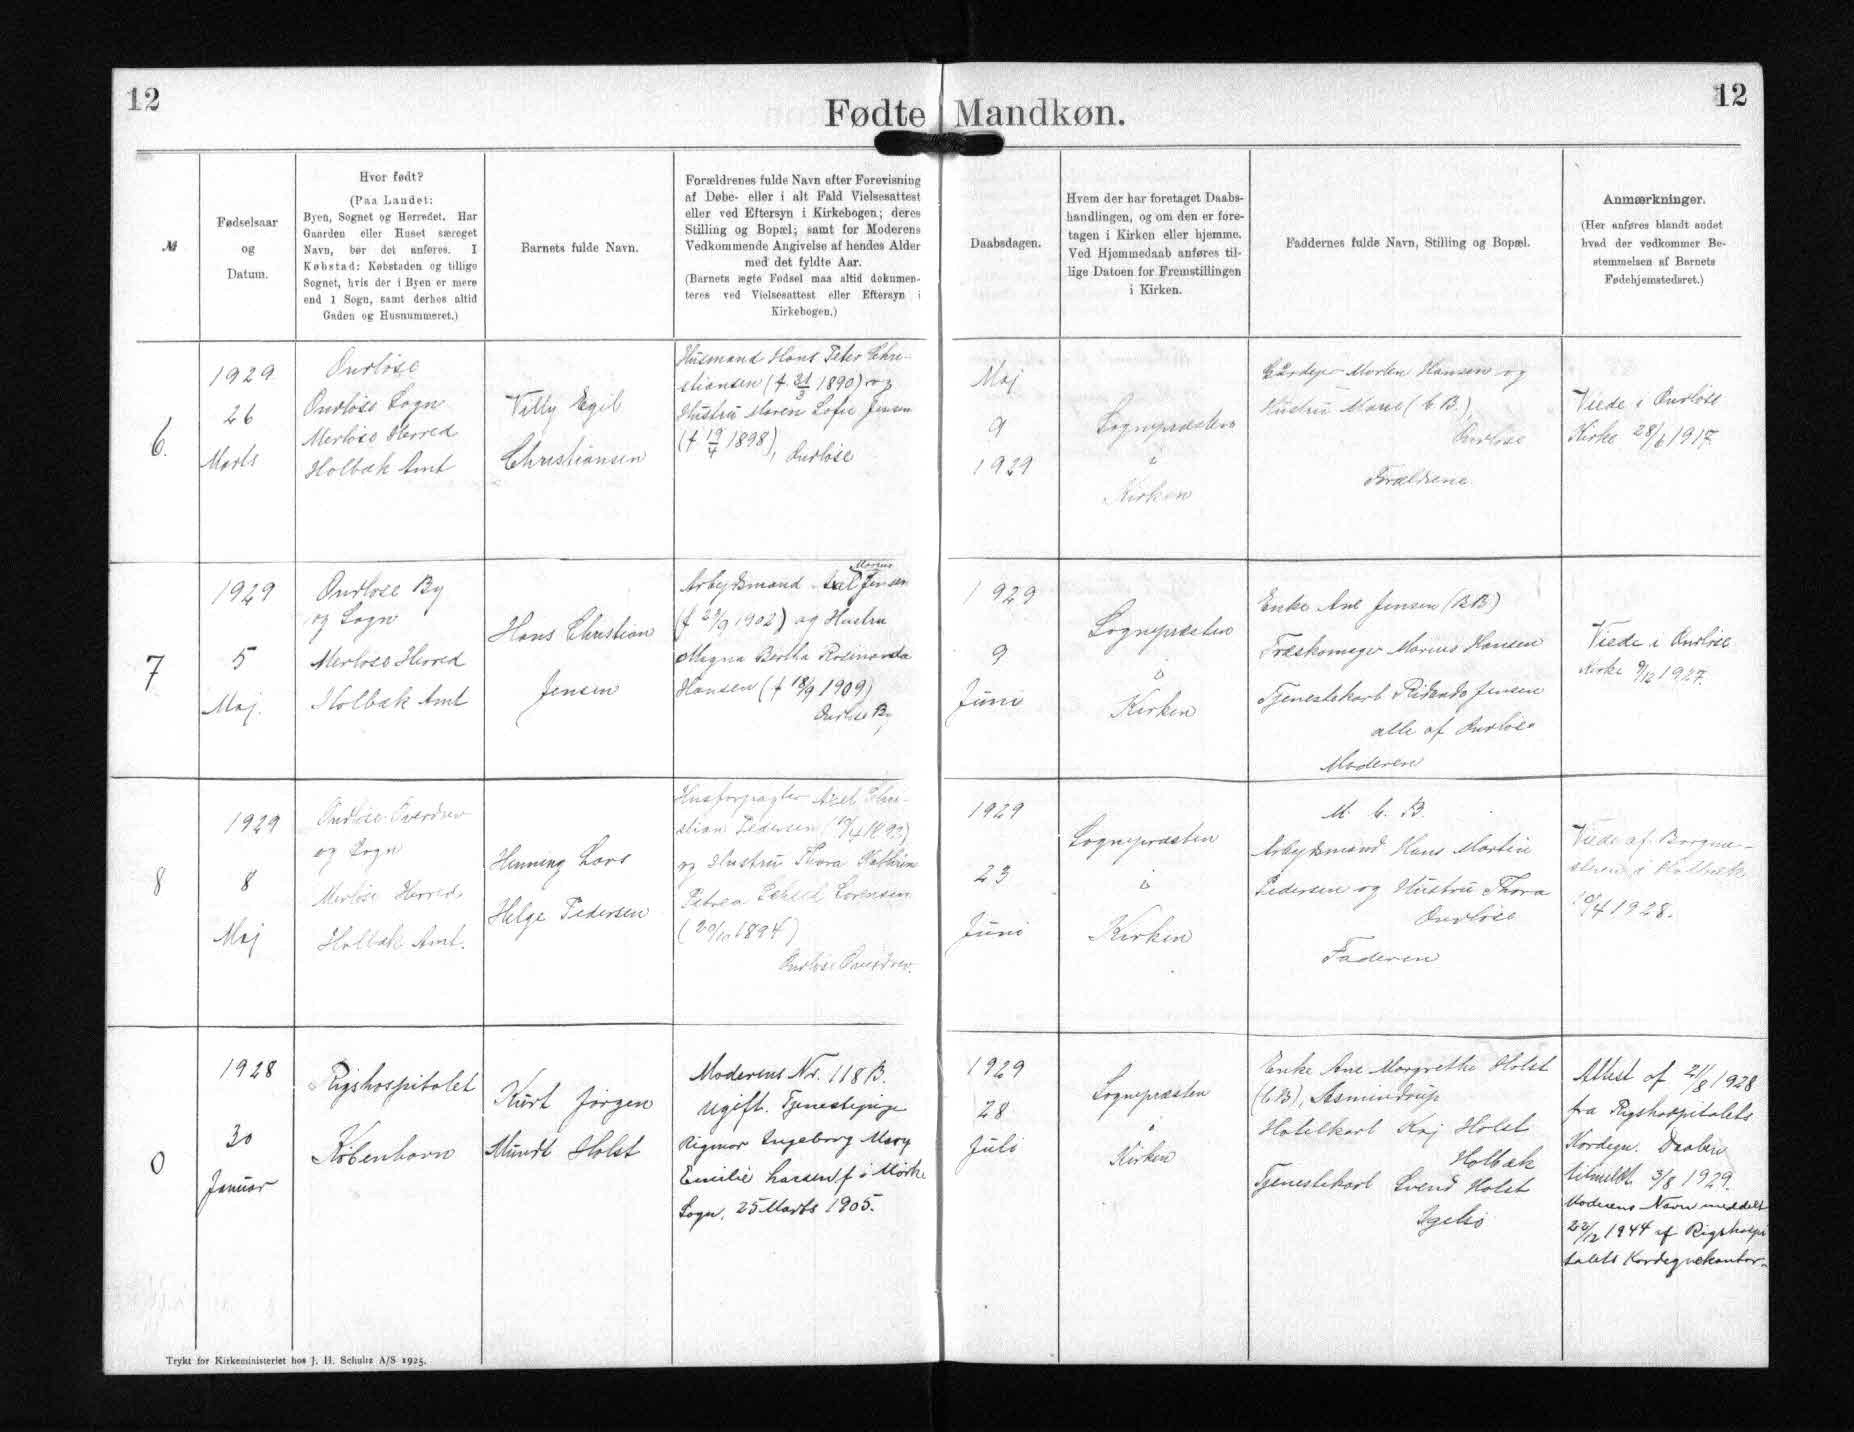 12
Fødte Mandkøn.
12
№
Fødselsaar
og
Datum.
Hvor født?
(Paa Landet:
Byen, Sognet og Herredet. Har
Gaarden eller Huset særeget
Navn, bør det anføres. I
Købstad: Købstaden og tillige
Sognet, hvis der i Byen er mere
end 1 Sogn, samt derhos altid
Gaden og Husnummeret.)
Barnets fulde Navn.
Forældrenes fulde Navn efter Forevisning
af Døbe- eller i alt Fald Vielsesattest
eller ved Eftersyn i Kirkebogen; deres
Stilling og Bopæl; samt for Moderens
Vedkommende Angivelse af hendes Alder
med det fyldte Aar.
(Barnets ægte Fødsel maa altid dokumen-
teres ved Vielsesattest eller Eftersyn i
Kirkebogen.)
Daabsdagen.
Hvem der har foretaget Daabs-
handlingen, og om den er fore-
tagen i Kirken eller hjemme.
Ved Hjemmedaab anføres til-
lige Datoen for Fremstillingen
i Kirken.
Faddernes fulde Navn, Stilling og Bopæl.
Anmærkninger.
(Her anføres blandt andet
hvad der vedkommer Be-
stemmelsen af Barnets
Fødehjemstedsret.)
6.
1929
26
Marts
Ondløse
Ondløse Sogn
Merløse Herred
Holbæk Amt
Villy Egil
Christiansen
Husmand Hans Peter Chri-
stiansen (f. 31/3 1890) og
Hustru Maren Sofie Jensen
(f 19/4 1898), Ondløse
Maj
9
1929
Sognepræsten
i
Kirken
Gårdejer Morten Hansen og
Hustru Marie (b. B.),
Ondløse
Forældrene
Viede i Ondløse
Kirke 28/6 1917.
7
1929
5
Maj.
Ondløse By
og Sogn
Merløse Herred
Holbæk Amt
Hans Christian
Jensen
Marius
Arbejdsmand Jensen
(f 23/9 1902) og Hustru
Magna Bertha Rosinanda
Hansen (f 18/9 1909)
Ondløse By
1929
9
Juni
Sognepræsten
i
Kirken
Enke Ane Jensen (B.B)
Træskomager Marius Hansen
Tjenestekarl Jensen
alle af Ondløse
Moderen
Viede i Ondløse
Kirke 9/12 1927.
8
1929
8
Maj
Ondløse Overdrev
og Sogn
Merløse Herred
Holbæk Amt.
Henning Lars
Helge Pedersen
Husforpagter Axel Chri-
stian Pedersen (10/4 1893)
og Hustru Thora Kathrine
Petrea Sorensen
(20/10 1894)
Ondløse Overdrev.
1929
23
Juni
Sognepræsten
i
Kirken
M. b. B.
Arbejdsmand Hans Martin
Pedersen og Hustru Thora
Ondløse
Faderen
Viede af Borgme-
steren i Holbæk
10/4 1928.
0
1928
30
Januar
Rigshospitalet
København
Kurt Jørgen
Mundt Holst
Moderens Nr. 118 B.
ugift. Tjenestepige
Rigmor Ingeborg Mary
Emilie Larsen f i Mørke
Sogn. 25 Marts 1905.
1929
28
Juli
Sognepræsten
i
Kirken
Enke Ane Margrethe Holst
(b.B), Asmindrup
Hotelkarl Kaj Holst
Holbæk
Tjenestekarl Svend Holst
Igelsø
Attest af 21/8 1928
fra Rigshospitalets
Kordegn. Daaben
tilmeldt 3/8 1929.
Moderens Navn meddelt
22/12 1944 af Rigshospi
talets Kordegnekontor.
Trykt for Kirkeministeriet hos J. H. Schultz A/S 1925.